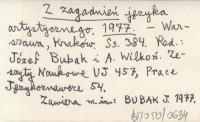 Z zagadnień języka
artystycznego. 1977. – War-
szawa, Kraków, Ss. 384. Red.:
Józef Bubak i A. Wilkoń. Ze-
szyty Naukowe UJ 457, Prace
Językoznawcze 54.
Zawiera m.in: BUBAK J. 1977.